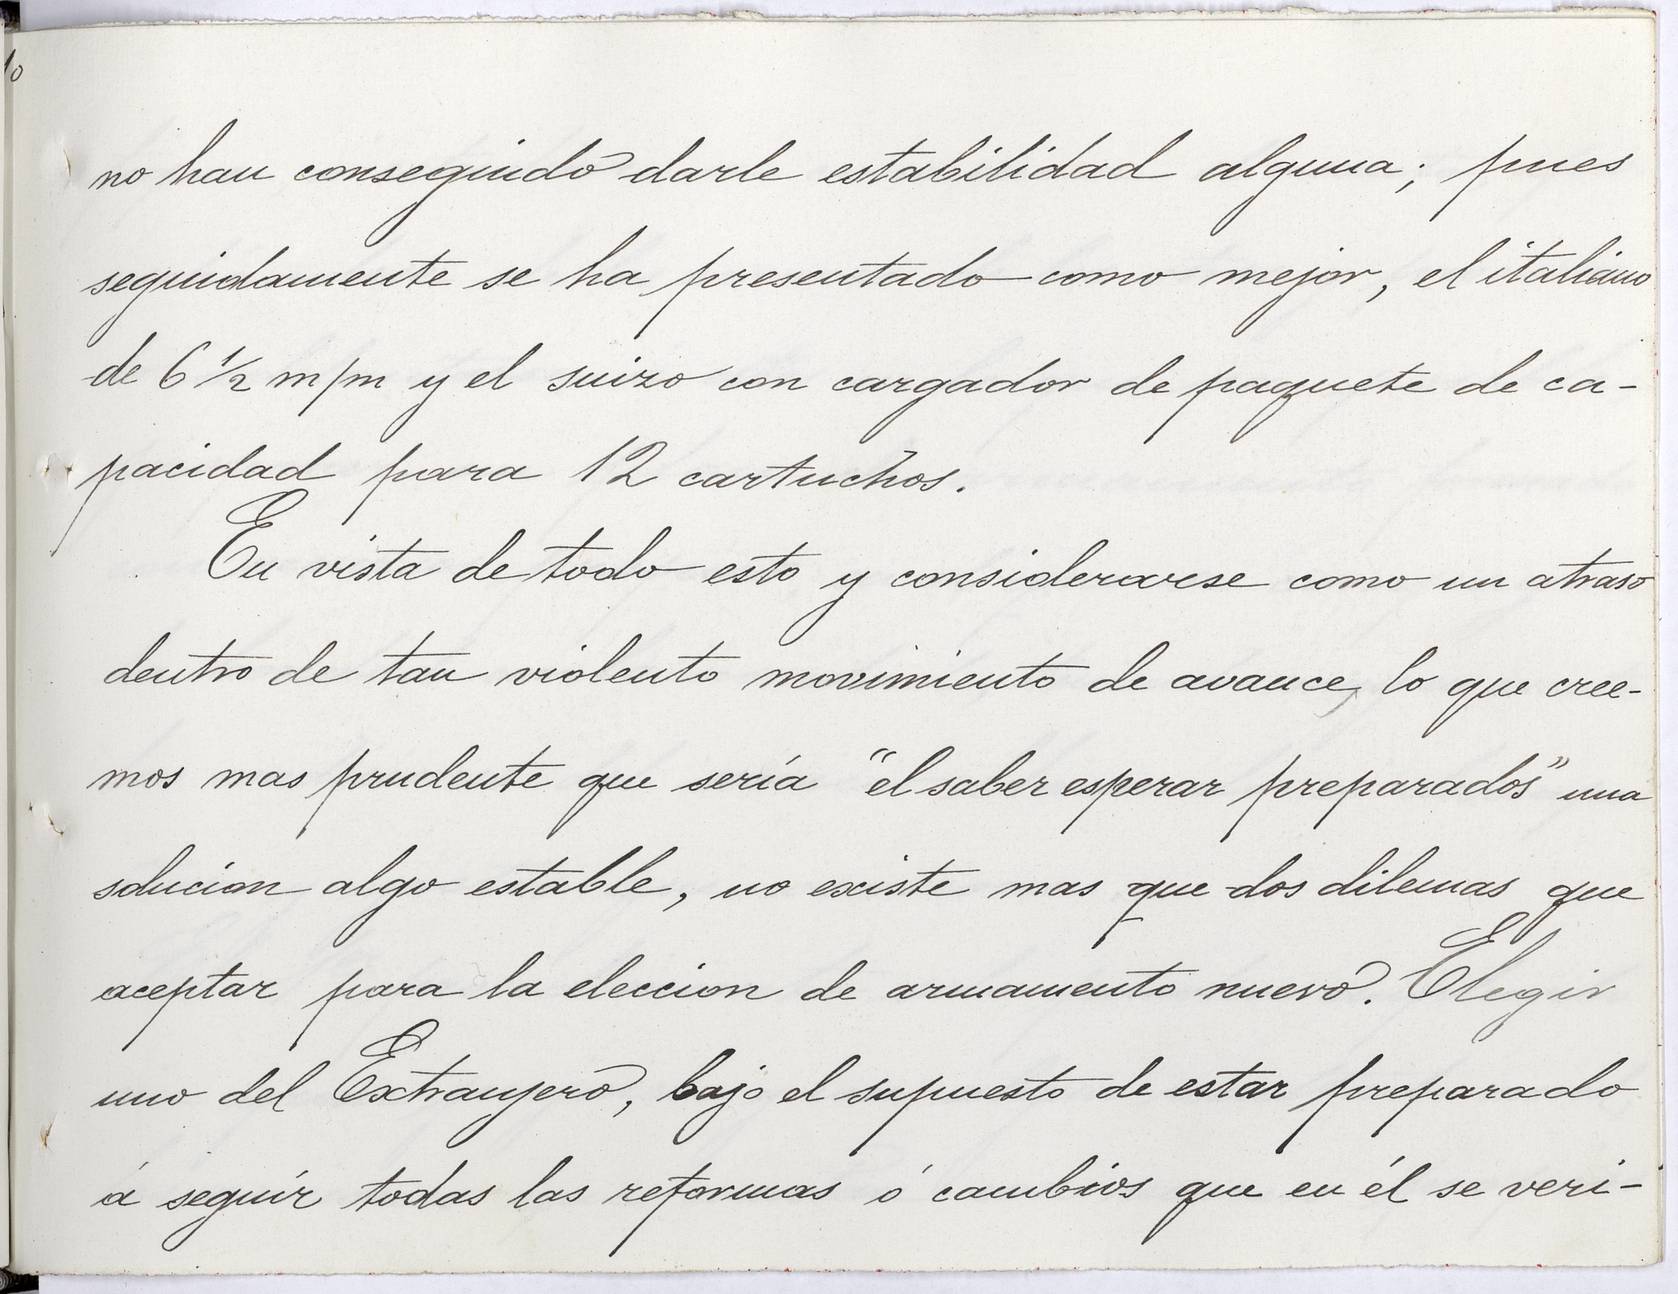 10
no han conseguido darle estabilidad alguna; pues
seguidamente se ha presentado como mejor, el italiano
de 6 ½ m/m y el suizo con cargador de paquete de ca-
pacidad para 12 cartuchos.
En vista de todo esto y considerarse como un atraso
dentro de tan violento movimiento de avance, lo que cree-
mos mas prudente que sería "el saber esperar preparados" una
solucion algo estable, no existe mas que dos dilemas que
aceptar para la eleccion de armamento nuevo. Elegir
uno del Extranjero, bajo el supuesto de estar preparado
á seguír todas las reformas ó cambios que en él se veri-